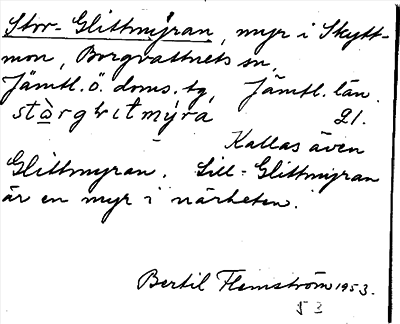 Stor-Glittmyran, myr i Skytt-
mon, Borgvattnets sn,
Jämtl. ö. doms. tg, Jämtl. län.
21.
Kallas även
Glittmyran. Lill-Glittmyran
är en myr i närheten.
Bertil Flemström 1953.
53